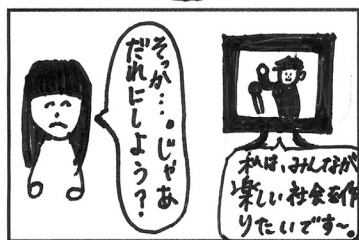 そっか…。じゃあ
だれにしよう？
私は、みんなが
楽しい社会を作
りたいです〜。